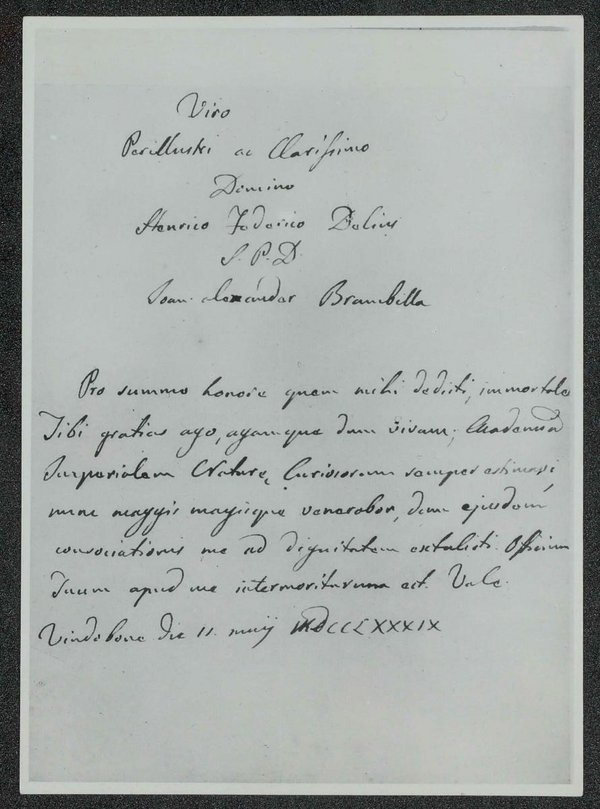 Viro
Perillustri ac Clarissimo
Domino
Henrico Federico Delius
S. P. D.
Joan. Alexander Brambilla
Pro summo honore quem mihi dedisti, immortale
Tibi gratias ago, agamque dum vivam; Academiã
Imperialem Naturę Curiosorum semper estimavi,
nunc maggis magisque venerabor, dum ejusdem
consociationis me ad dignitatem extulisti. Officium
Tuum apud me intermoriturum est. Vale.
Vindobone die 11. maij MDCCLXXXIX